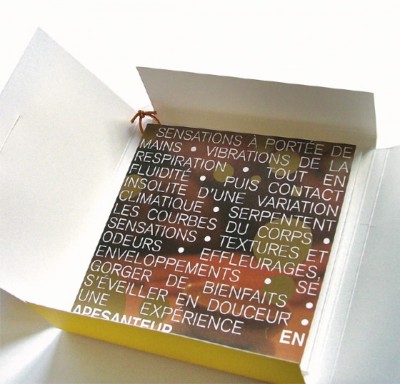 SENSATIONS À PORTÉE DE
MAINS • VIBRATIONS DE LA
RESPIRATION • TOUT EN
FLUIDITÉ • PUIS CONTACT
INSOLITE D'UNE VARIATION
CLIMATIQUE • SERPENTENT
LES COURBES DU CORPS •
SENSATIONS • TEXTURES ET
ODEURS • EFFLEURAGES,
ENVELOPPEMENTS • SE
GORGER DE BIENFAITS •
S'ÉVEILLER EN DOUCEUR •
UNE EXPÉRIENCE EN
APESANTEUR